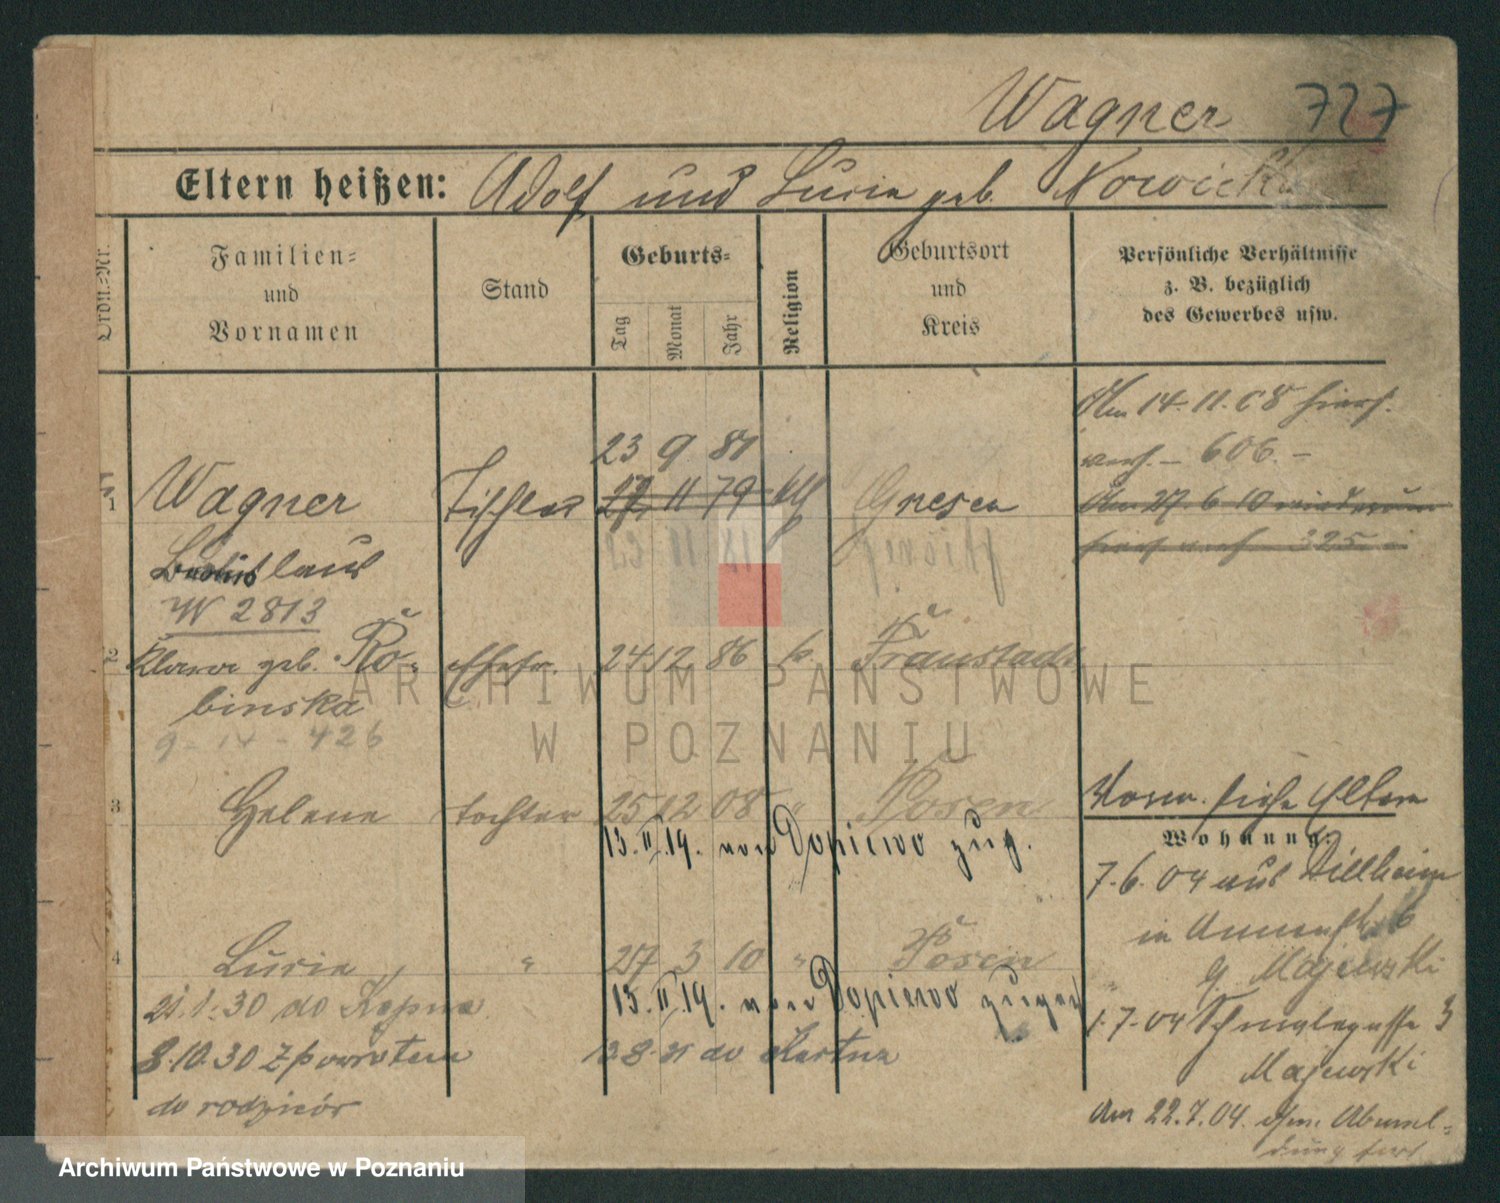 Wagner 727
Eltern heißen: Adolf und Lucia geb. Nowicka
Ordn.-Nr.
Familien=
und
Vornamen
Stand
Geburts=
Tag
Monat
Jahr
Religion
Geburtsort
und
Kreis
Persönliche Verhältnisse
z. B. bezüglich
des Gewerbes usw.
Am 14.11.08 hiers.
verh. - 606. -
23 9 81
1 Wagner Tischler 29 11 79 kth Gnesen
Am 27.6.10 wiederum
325
W 2813
2 Klara geb. Ro-
binska
Ehefr. 24 12 86 k. Fraustadt
9-14-426
3 Helene Tochter 25 12 08 " Posen
13.II.19. von Dopiewo zug.
Vorm. siehe Eltern
Wohnung:
7.6.04 aus Dillheim
in
Majewski
4 Lucia " 27 3 10 " Posen
13.II.19. von Dopiewo zugez.
21.1.30 do Kępna
8.10.30 z powrotem
do rodziców
do
1.7.04 3
Majewski
Am 22.7.04. ohne Abmel=
dung fort
ARCHIWUM PAŃSTWOWE
W POZNANIU
Archiwum Państwowe w Poznaniu